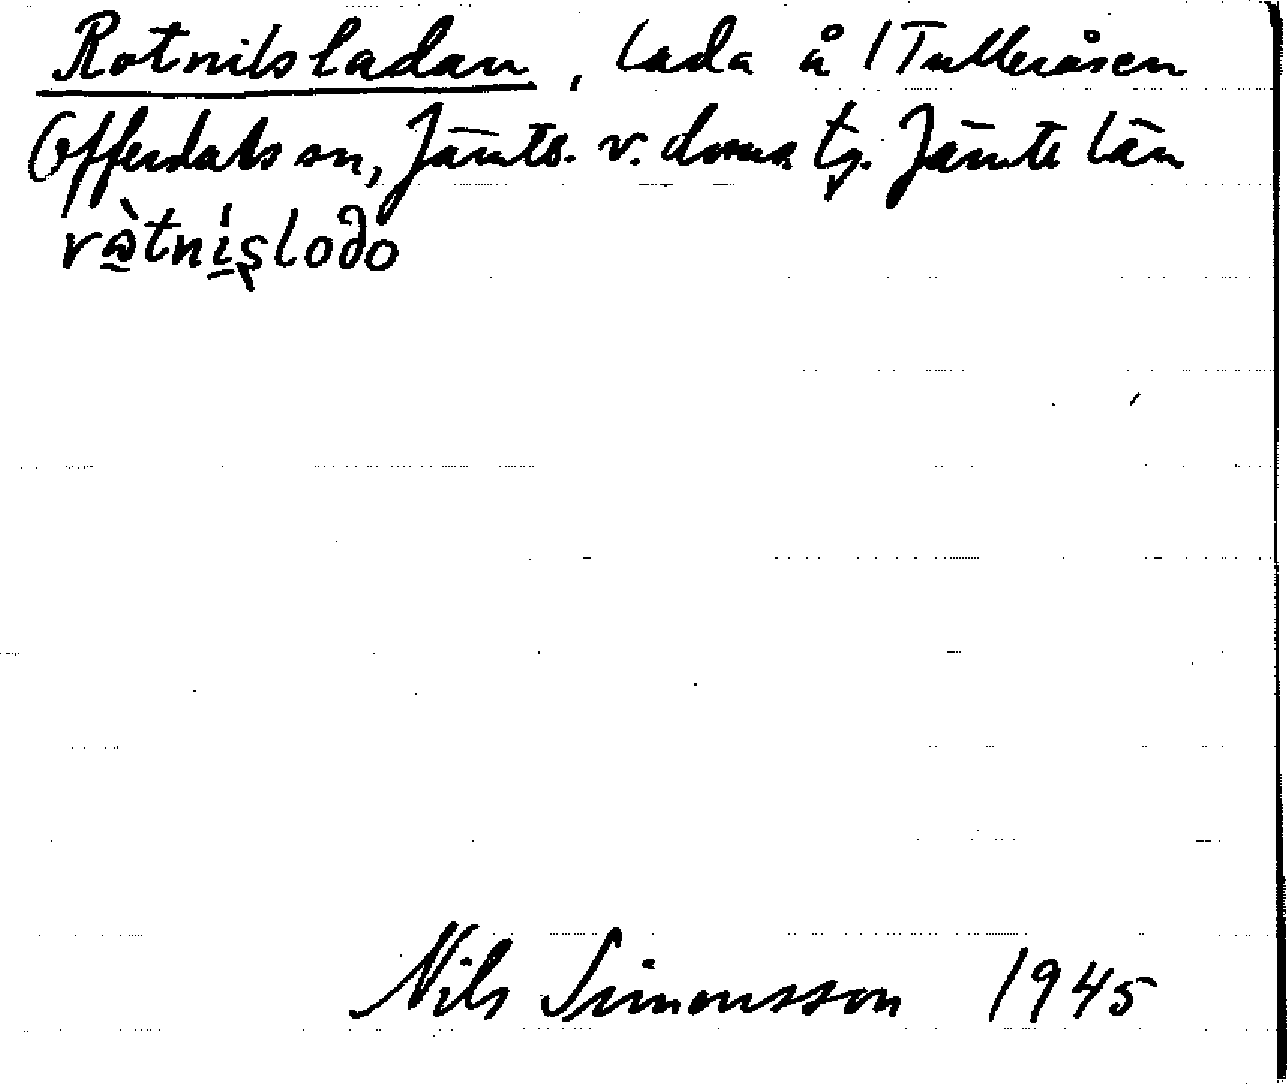 Rotnilsladan, lada å /Tulleråsen
Offerdals sn, Jämtl. v. doms. tg. Jämtl län
ràtnislodo
Nils Simonsson 1945